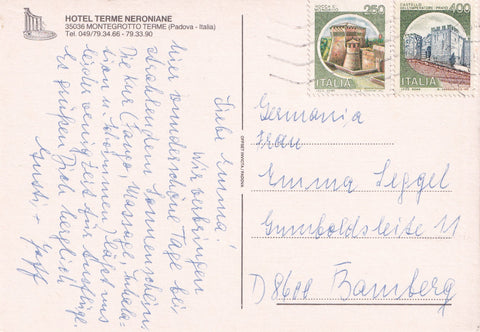 HOTEL TERME NERONIANE
35036 MONTEGROTTO TERME (Padova - Italia)
Tel. 049/79.34.66 - 79.33.90
Liebe Emma!
Wir verbringen
hier wunderschöne Tage bei
strahlendem Sonnenschein.
Die Kur (Fango, Massage, Inhala-
tion u. Schwimmen) lässt uns
leider wenig Zeit für Ausflüge.
Es grüßen Dich herzlich
Gusti +
OFFSET INVICTA - PADOVA
250
ITALIA
CASTELLO
DELL'IMPERATORE - PRATO
400
ITALIA
Germania
Frau
Emma Seggel
Gumboldsleite 11
D 8600 Bamberg